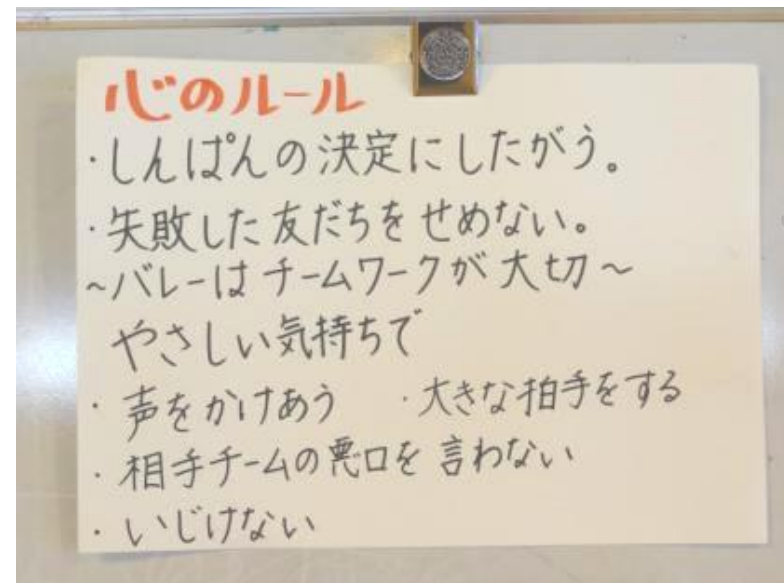 心のルール
・しんぱんの決定にしたがう。
・失敗した友だちをせめない。
~バレーはチームワークが大切~
やさしい気持ちで
・声をかけあう ・大きな拍手をする
・相手チームの悪口を言わない
・いじけない